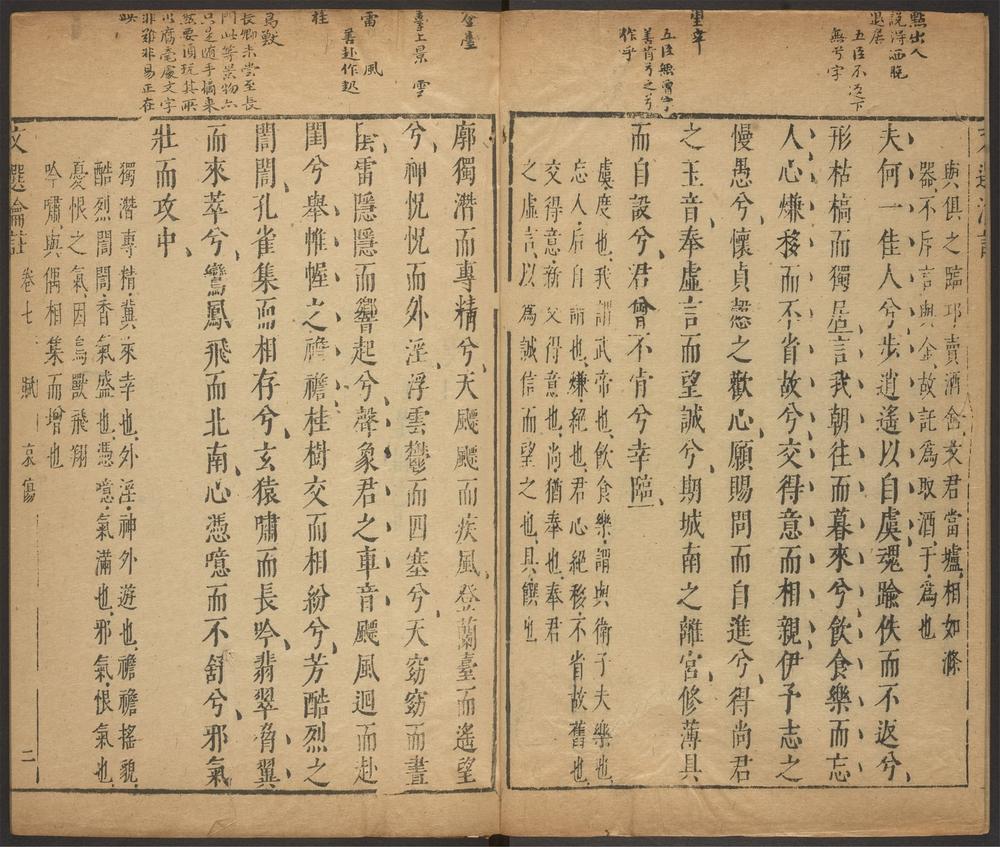 點出人
說得洒脫
退居
五臣不返下
無兮字
望幸
五臣無曾字
善肯兮之兮
作乎
與俱之臨邛賣酒舍文君當壚相如滌
器不斥言與金故託爲取酒于爲也
夫何一佳人兮步逍遙以自虞魂踰佚而不返兮
形枯槁而獨居言我朝往而暮來兮飲食樂而忘
人心慊移而不省故兮交得意而相親伊予志之
慢愚兮懷貞愨之歡心願賜問而自進兮得尚君
之玉音奉虛言而望誠兮期城南之離宮修薄具
而自設兮君曾不肯兮幸臨
虞度也我謂武帝也飲食樂謂與衛子夫樂也
忘人后自謂也慊絕也君心絕移不省故舊也
交得意新交得意也尚猶奉也奉君
之虛言以爲誠信而望之也具饌也
金臺
臺上景 雲
雷 風
善赴作起
桂
鳥獸
長卿未嘗至長
門此等景物亦
只是隨手描來
然要須玩其所
以腐毫處文字
非難非易正在
廓獨潛而專精兮天飄飄而疾風登蘭臺而遙望
兮神怳怳而外淫浮雲鬱而四塞兮天窈窈而晝
陰雷隱隱而響起兮聲象君之車音飄風迴而赴
閨兮舉帷幄之襜襜桂樹交而相紛兮芳酷烈之
誾誾孔雀集而相存兮玄猿嘯而長吟翡翠脅翼
而來萃兮鸞鳳飛而北南心憑噫而不舒兮邪氣
壯而攻中
獨潛專精冀來幸也外淫神外遊也襜襜搖貌
酷烈誾誾香氣盛也憑噫氣滿也邪氣恨氣也
憂恨之氣因鳥獸飛翔
吟嘯與偶相集而增也
文選瀹註 卷七 賦 哀傷 二